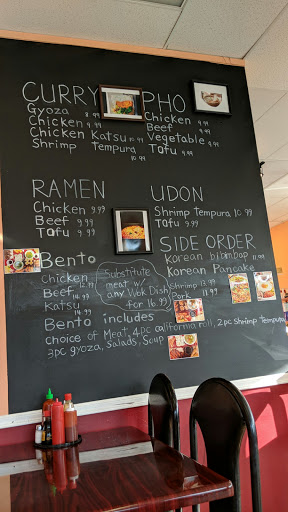 CURRY
Gyoza 8.99
Chicken 9.99
Chicken Katsu 10.99
Shrimp Tempura 10.99
PHO
Chicken 9.99
Beef 9.99
Vegetable 9.99
Tofu 9.99
RAMEN
Chicken 9.99
Beef 9.99
Tofu 9.99
UDON
Shrimp Tempura 10.99
Tofu 9.99
SIDE ORDER
Korean bibimbap 11.99
Korean Pancake
Shrimp 13.99
Pork 11.99
Bento
Chicken
Beef 14.99
Katsu 14.99
Substitute
meat w/
any Wok Dish
for 16.99
Bento includes
choice of Meat, 4pc california roll, 2pc Shrimp Tempura
3pc gyoza, Salads, Soup